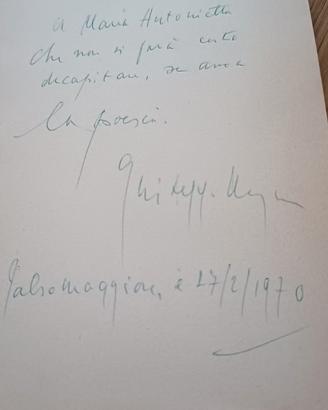 a Maria Antonietta
che non si farà certo
decapitare, se ama
la poesia.
Salsomaggiore, è 27/2/1970